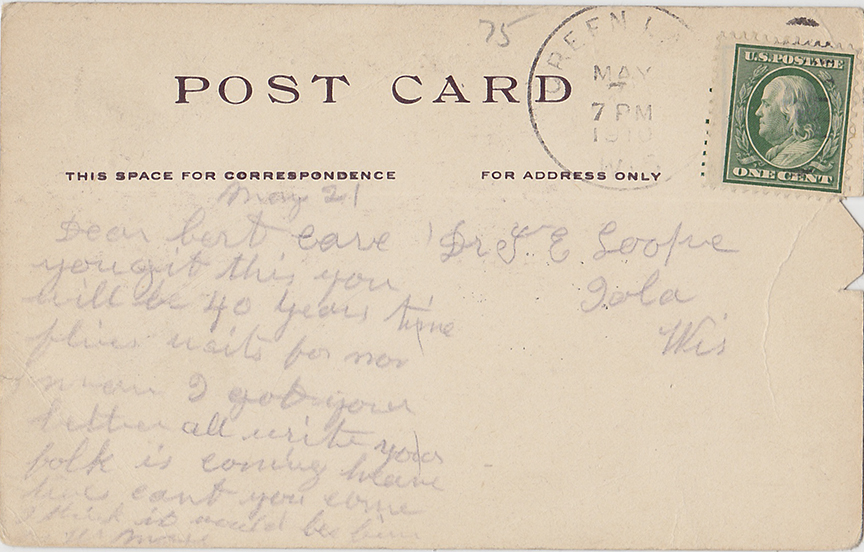 75
GREEN L
MAY
7 PM
1910
WIS
U.S. POSTAGE
ONE CENT
POST CARD
THIS SPACE FOR CORRESPONDENCE
FOR ADDRESS ONLY
May 21
Dear bert
you git this you
will be 40 years time
flies waits for
man I got your
letter all write your
folk is coming
cant you come
I think it would be
Dr E Loope
Iola
Wis